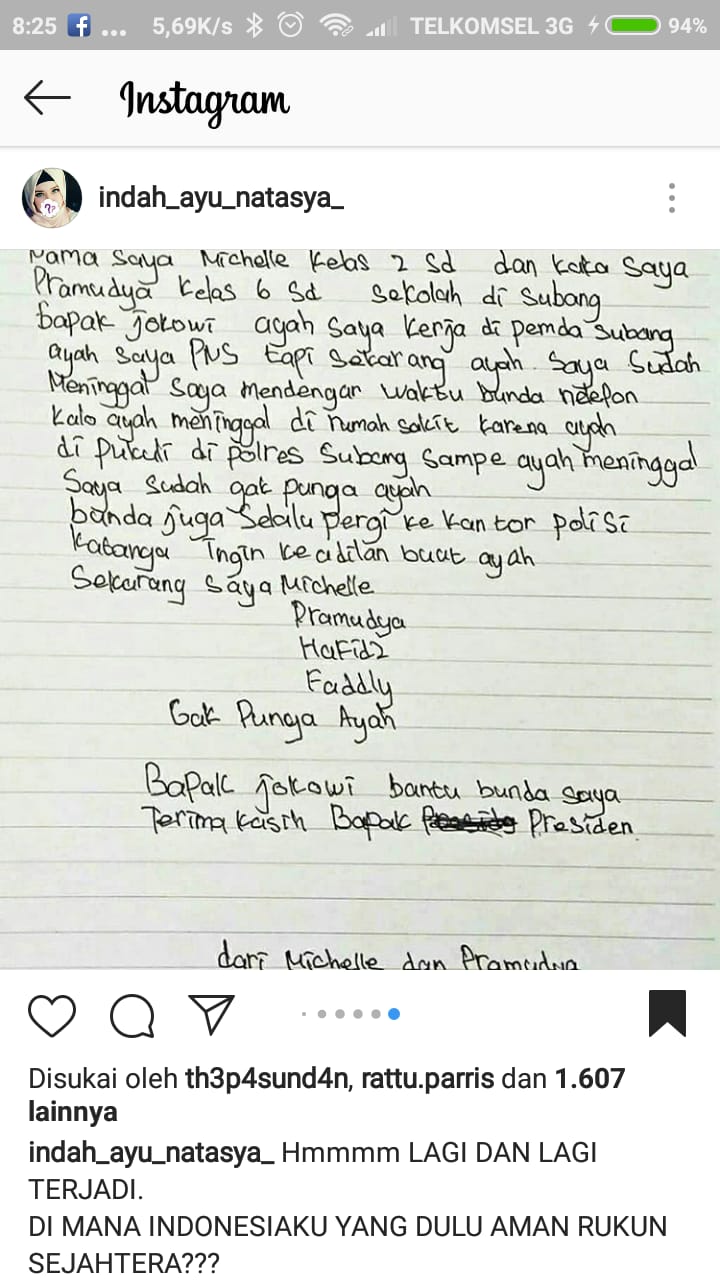 8:25 ... 5,69K/s TELKOMSEL 3G 94%
Instagram
indah_ayu_natasya_
Nama saya Michelle kelas 2 Sd dan kaka saya
Pramudya kelas 6 Sd sekolah di Subang
bapak jokowi ayah saya kerja di pemda subang
ayah saya PNS tapi sekarang ayah saya sudah
Meninggal saya mendengar waktu bunda nelefon
kalo ayah meninggal di rumah sakit karena ayah
di pukuli di polres Subang sampe ayah meninggal
Saya sudah gak punga ayah
bunda juga selalu pergi ke kantor polisi
katanga Ingin keadilan buat ayah
Sekarang saya Michelle
Pramudya
HaFidz
Faddly
Gak Punga Ayah
Bapak jokowi bantu bunda saya
Terima kasih Bapak Presiden
dari Michelle dan Pramudya
Disukai oleh th3p4sund4n, rattu.parris dan 1.607
lainnya
indah_ayu_natasya_ Hmmmm LAGI DAN LAGI
TERJADI.
DI MANA INDONESIAKU YANG DULU AMAN RUKUN
SEJAHTERA???